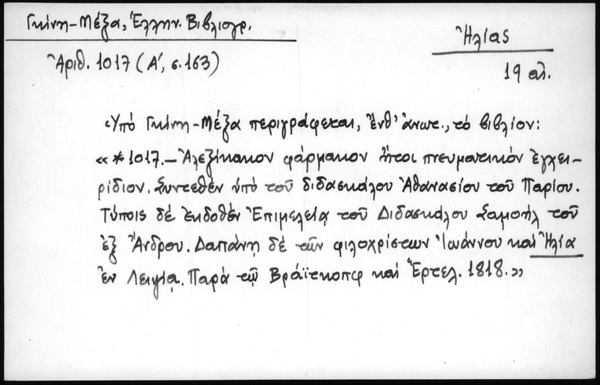 Γκίνη-Μέξα, Ἑλλην. Βιβλιογρ.
Ἀριθ. 1017 (Α', σ. 163)
Ἠλίας
19 αἰ.
Ὑπό Γκίνη-Μέξα περιγράφεται, ἔνθ' ἀνωτ., τό βιβλίον:
«*1017.— Ἀλεξίκακον φάρμακον ἤτοι πνευματικόν ἐγχει-
ρίδιον. Συντεθέν ὑπό τοῦ διδασκάλου Ἀθανασίου τοῦ Παρίου.
Τύποις δέ ἐκδοθέν Ἐπιμελείᾳ τοῦ Διδασκάλου Σαμουήλ τοῦ
ἐξ Ἄνδρου. Δαπάνῃ δέ τῶν φιλοχρίστων Ἰωάννου καί Ἠλία
ἐν Λειψίᾳ. Παρά τῷ Βράϊτκοπφ καί Ἕρτελ. 1818.»